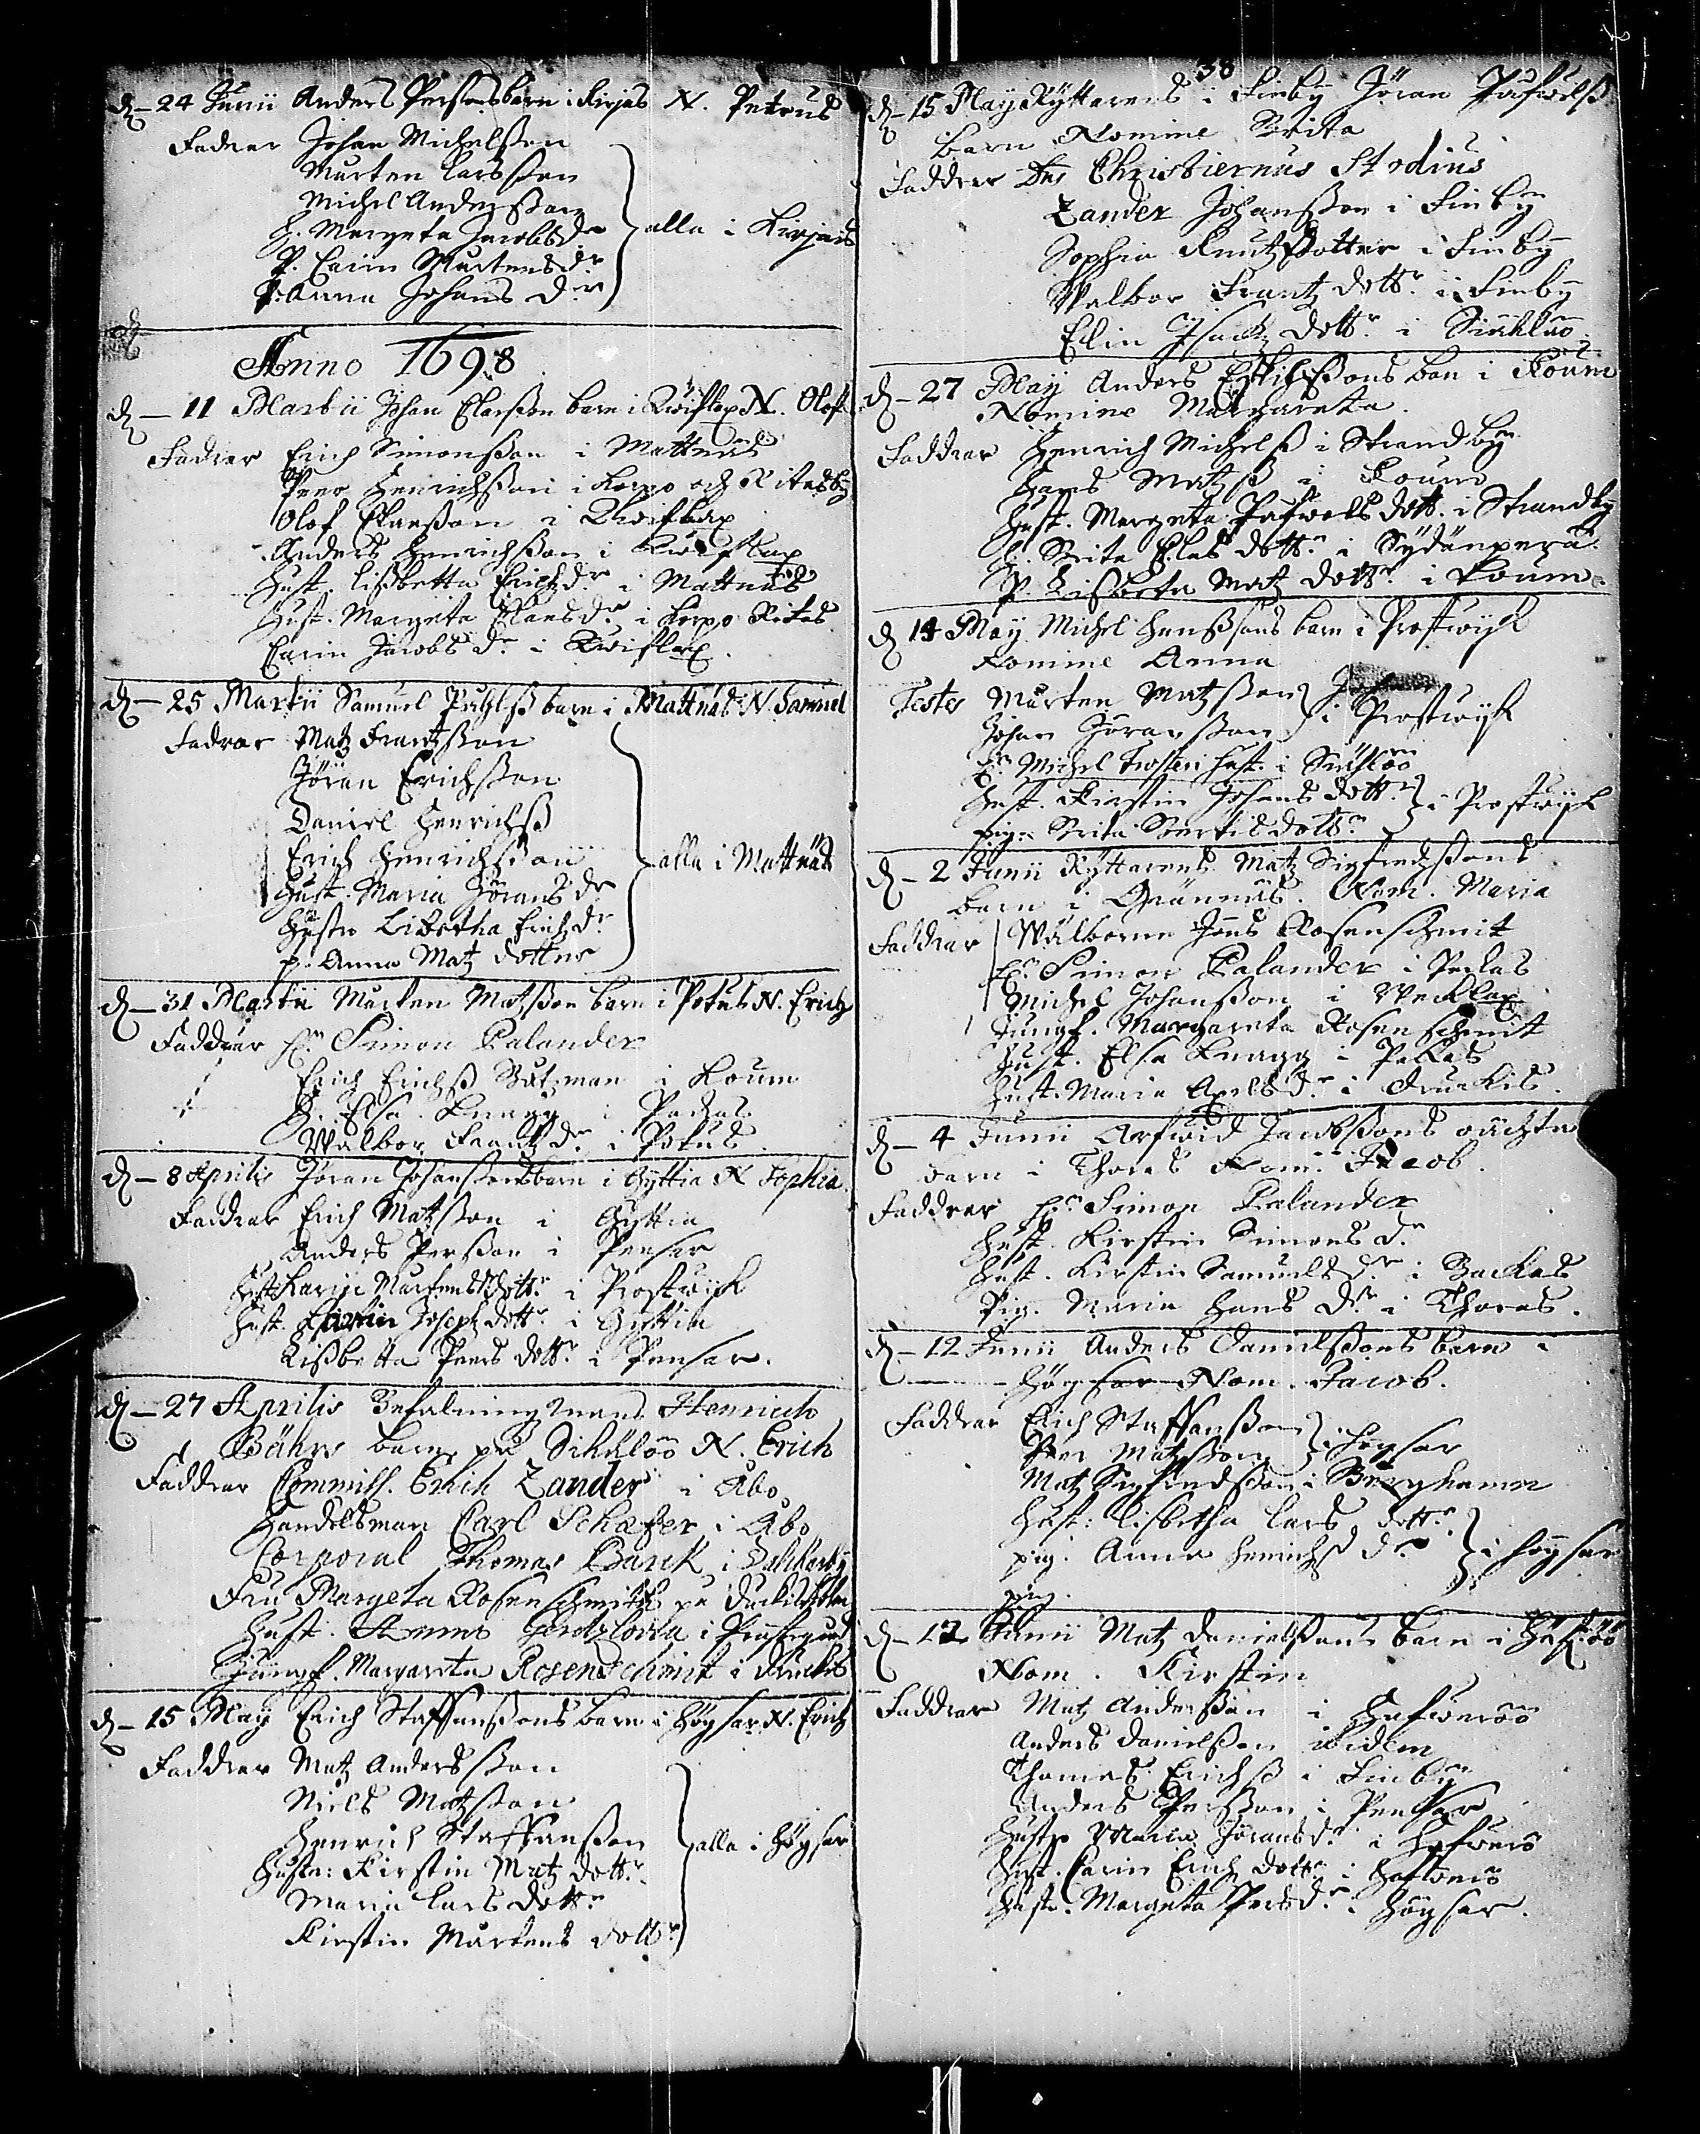 d. 24 Junii Anders Perssons barn i Kirjais N. Petrus
Fadrar Johan Michelsson
Murten Larsson
Michel Andersson
H. Margeta Jacobs dr
P. Carin Murtens dr
P. Anna Johans dr
alla i Kirjais
Anno 1698
d. 11 Martii Johan Classon barn i Kwiflax N. Olof
Fadrar Erich Simonsson i Mattnäs
Peer Henrichsson i Korpo och Ritasby
Olof Claesson i Kwiflax
Anders Henrichsson i Kwiflax
Hust. Lissbetta Erichz dr i Mattnäs
Hust. Margeta Claes dr i Korpo Ritas
Carin Jacobs dr i Kwiflax.
d. 25 Martii Samuel barn i Mattnäs N. Samuel
Fadrar Matz Frantzsson
Jören Erichsson
Daniel Henrichss
Erich Henrichsson
Hust. Maria Jörans dr
Hustr Lisbetha Erichz dr
p. Anna Matz dotter
alla i Mattnäs
d. 31 Martii Murten Matsson barn i Pokus N. Erich
Faddrar Hr Simon Palander
Erich Erichss Butzman i Koum
H. Elsa Knagg i Parkas
Walbor Frantz dr i Pokus
d. 8 Aprilis Jöran Johanssons barn i Gyttia N Sophia.
Faddrar Erich Matzsson i Gyttia
Anders Persson i Pensar
Hust Karin Murtens dottr i Prostwijk
Hust. Joseph dottr i Gyttia
Lissbetta Peers dottr i Pensar.
d. 27 Aprilis Befalningzmans Henrich
Bährs barn på Sihlöö N. Erich
Faddrar Commiss. Erich Zander i Åbo
Handelsman Carl Schæfer i Åbo
Corporal Thomas Barck i
Fru Margeta Rosenschmitt på
Hust. Anna i
Jungf. Margareta Rosenschmit i Druckis
d. 15 Maij Erich Staffanssons barn i Högsar N. Erich
Faddrar Matz Andersson
Niels Matzson
Henrich Staffansson
Hustr: Kirstin Matz dottr
Maria Lars dottr
Kirstin Mårtens dottr
alla i Högsar
38
d. 15 Maij Ryttarens i Finby Jöran Påfwelss
barn Nomine Brita
Faddrar Dns Christiernus Stodius
Zander Johansson i Finby
Sophia Knutzdotter i Finby
Walbor Frantz dottr i Finby
Elin Isacks dottr i Sihlöö
d. 27 Maij Anders Eskilssons barn i Koum
Nomine Margareta.
Faddrar Henrich Michelss i Strandby
Hans Matzss i Koum
Hust. Margeta Påfwels dott. i Strandby
H. Brita Clas dottr i Sydänperä
P. Lisbeta Matz dottr i Koum
d. 14 Maij Michel Hanssons barn i Prostwijk
Nomine Anna
Testes Mårten Matzson
Johan Jöransson
i Prostwijk
Hr Michel hust. i Sihlöö
Hust. Kirstin Johans dottr
piga Brita Bertils dottr
i Prostwijk
d. 2 Junii Ryttarens Matz Sigfredssons
barn i Grännäs. Nom. Maria
Faddrar Wälborne Jöns Rosenschmit
Hr Simon Palander i Parkas
Michel Johansson i Wecklax
Jungf. Margareta Rosenschmit
Hust. Elsa Knagg i Pakas
Hust. Maria Axels dr i Druckis.
d. 4 Junii Arfwid Jacobssons oächta
barn i Thoras Nom. Jacob.
Faddrar Hr Simon Palander
Hust. Kirstin Simons dr
Hust. Kirstin Samuels dr i Backas
Pig. Maria Hans dr i Thoras.
d. 12 Junii Anders Danielssons barn i
Högsar Nom. Jacob.
Faddrar Erich Staffansson
Peer Matzsson
i Högsar
Matz Sigfredsson i Berghamn
Hust: Lisbetha Lars dottr
pig. Anna Henrichs dr
i Högsar
pig.
d. 12 Junii Matz Danielssons barn i
Nom. Kirstin
Faddrar Matz Andersson i Hafweröö
Anders Danielsson ibidem
Thomas Erichss i Finby
Anders Persson i Pensar
Hustr Maria Jörans dr i Hafwerö
Hust. Carin Erich dottr i Hafwerö
Hustr. Margeta Pers dr i Högsar.